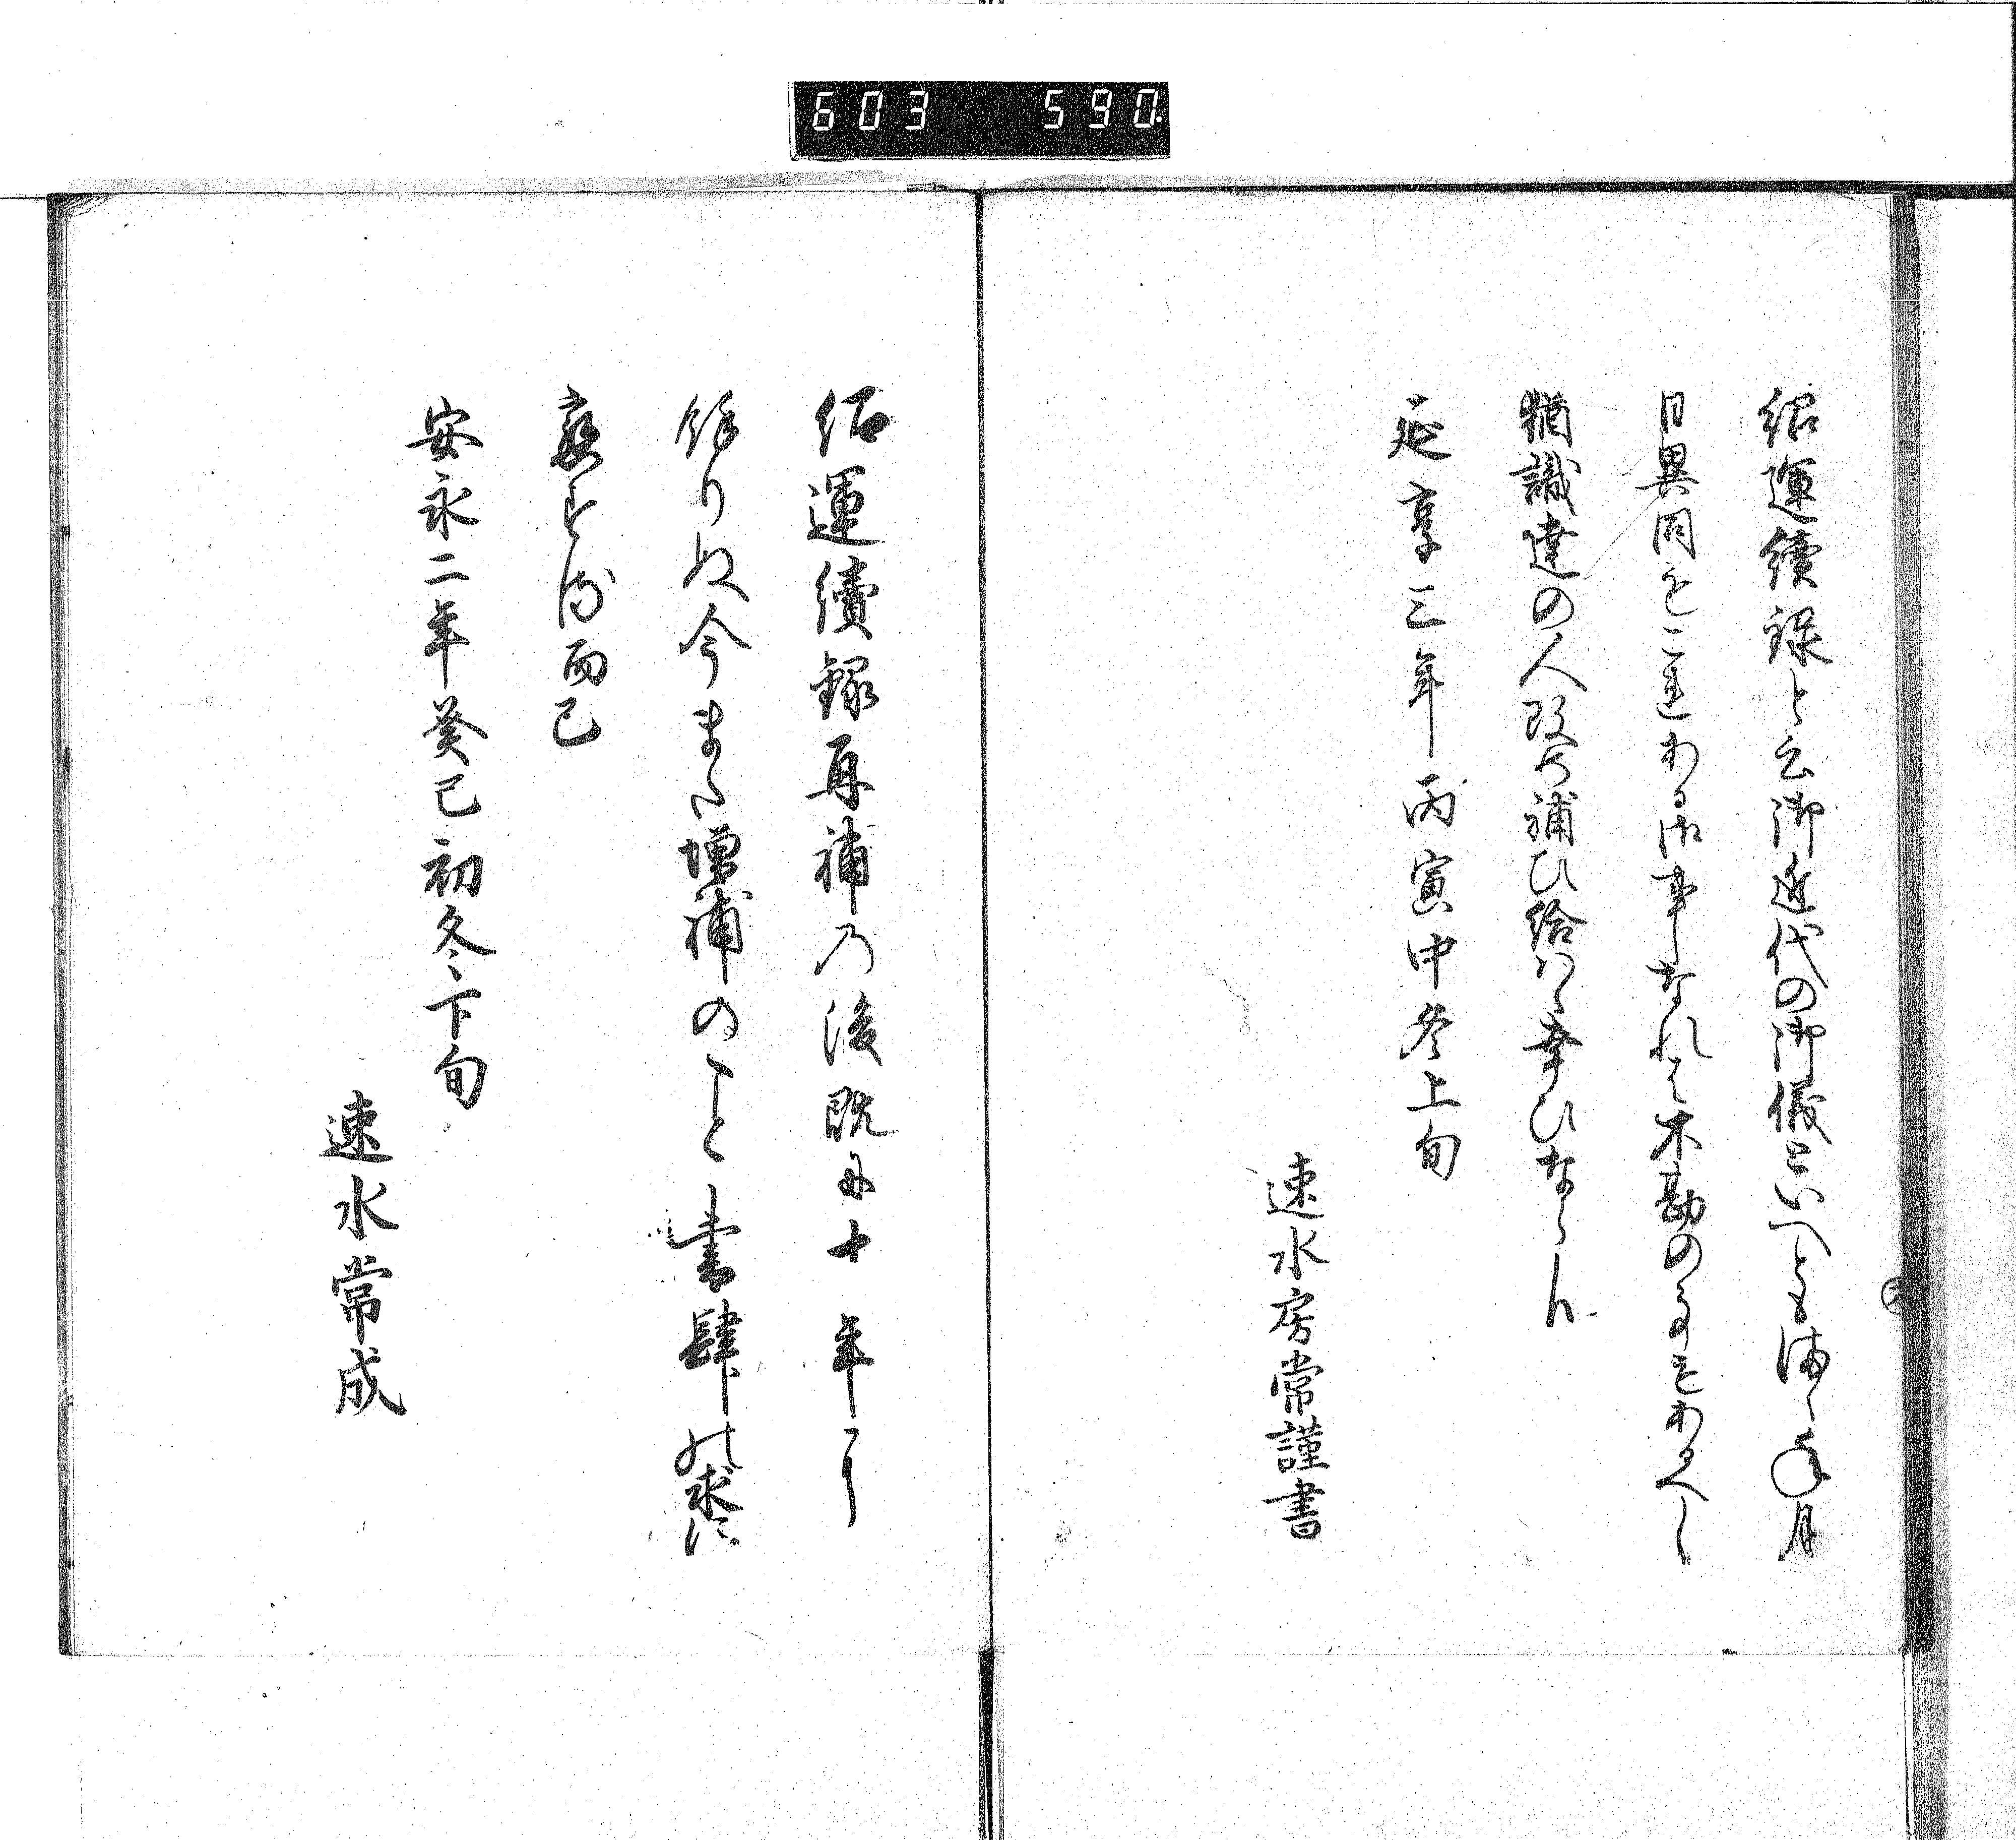 603 590.
紹運續録と云御近代の御儀といへとも満ゝ年月
日異同をこれわる御事なれは不勘の事もあるへし
猶識達の人改め補ひ給はゝ幸ひならん
延享三年丙寅中冬上旬
速水房常謹書
紹運續録再補乃後既に十年に
餘りぬ今また増補のこと書肆の求に
應する而已
安永二年癸巳初冬下旬
速水常成